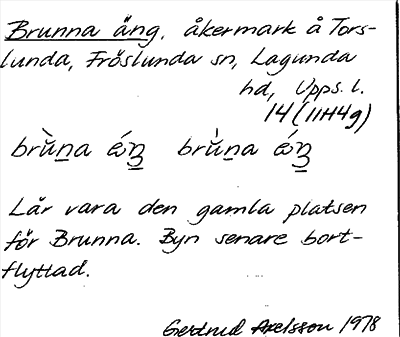 Brunna äng, åkermark å Tors-
lunda, Fröslunda sn, Lagunda
hd, Upps. l.
14 (11H4g)
Lär vara den gamla platsen
för Brunna. Byn senare bort-
flyttad.
Gertrud Axelsson 1978